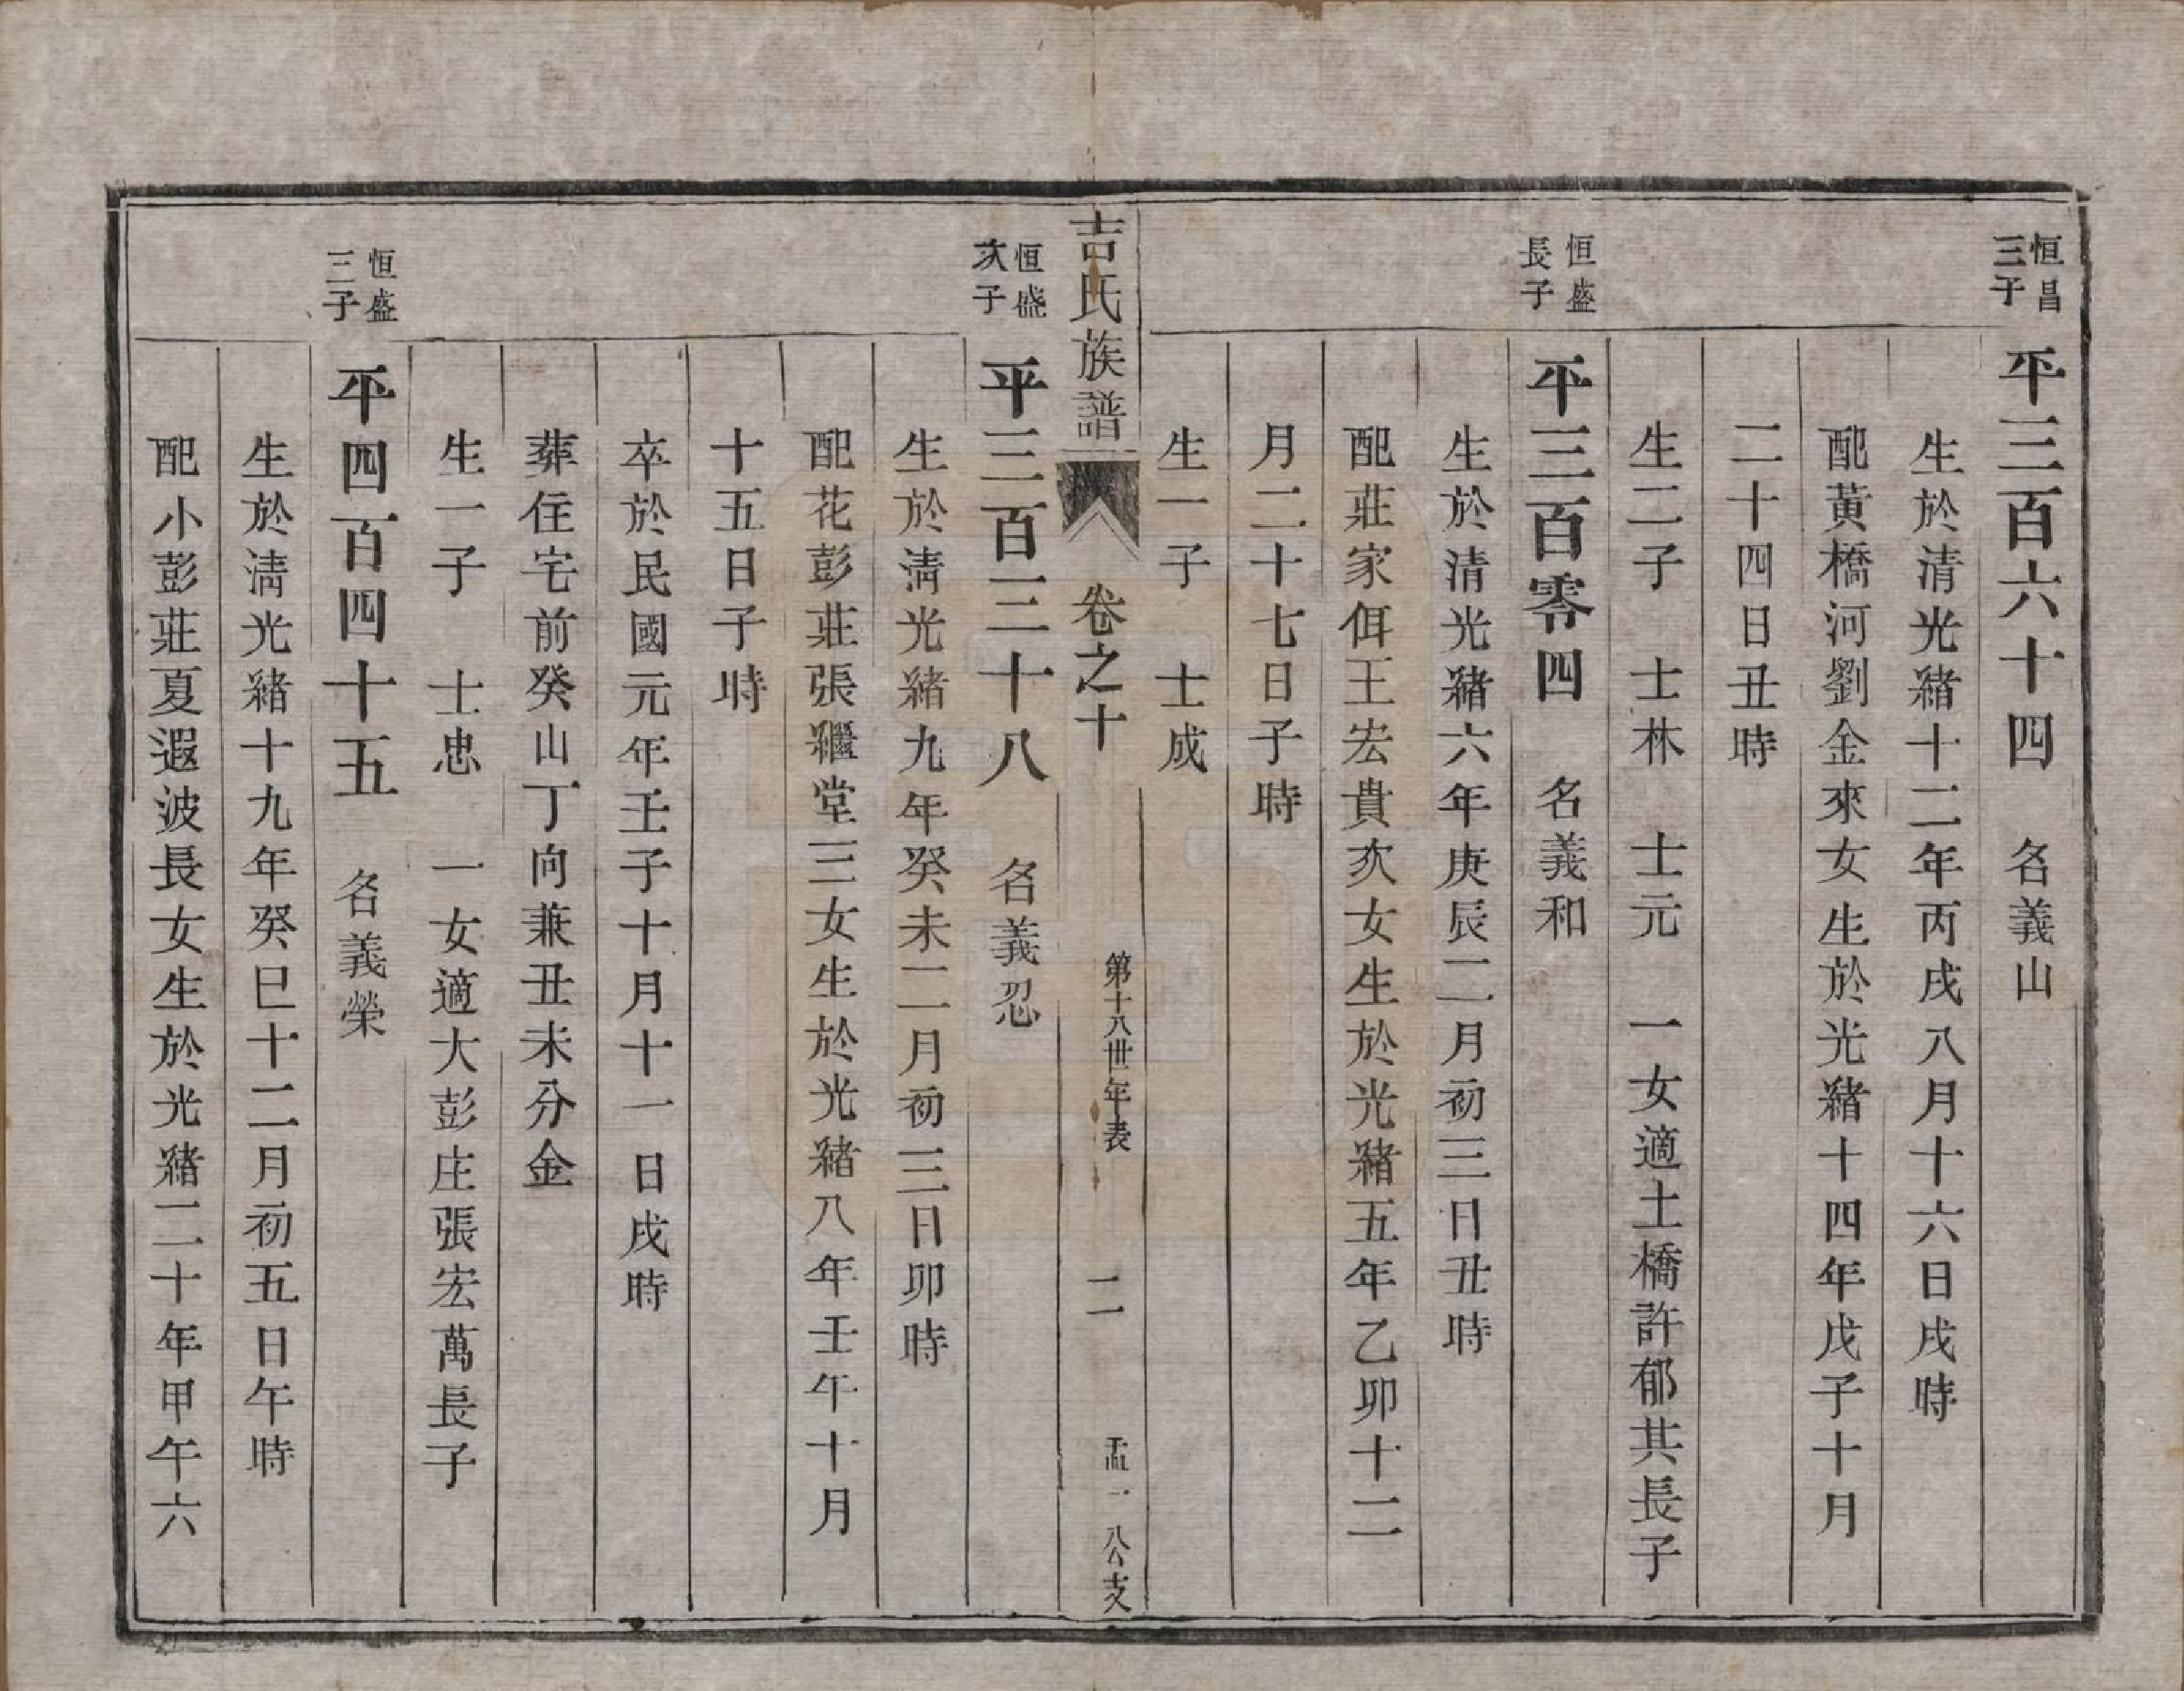 恒昌
三子
平三百六十四　名義山
生於清光緒十二年丙戌八月十六日戌時
配黃橋河劉金來女生於光緒十四年戊子十月
二十四日丑時
生二子　士林　士元　一女適土橋許郁其長子
恒盛
長子
平三百零四　名義和
生於清光緒六年庚辰二月初三日丑時
配莊家佴王宏貴次女生於光緒五年乙卯十二
月二十七日子時
生一子　士成
吉氏族譜　卷之十　第十八世年表　二　孟一公支
恒盛
次子
平三百三十八　名義忍
生於清光緒九年癸未二月初三日卯時
配花彭莊張繼堂三女生於光緒八年壬午十月
十五日子時
卒於民國元年壬子十月十一日戌時
葬住宅前癸山丁向兼丑未分金
生一子　士忠　一女適大彭庄張宏萬長子
恒盛
三子
平四百四十五　名義榮
生於清光緒十九年癸巳十二月初五日午時
配小彭莊夏遐波長女生於光緒二十年甲午六